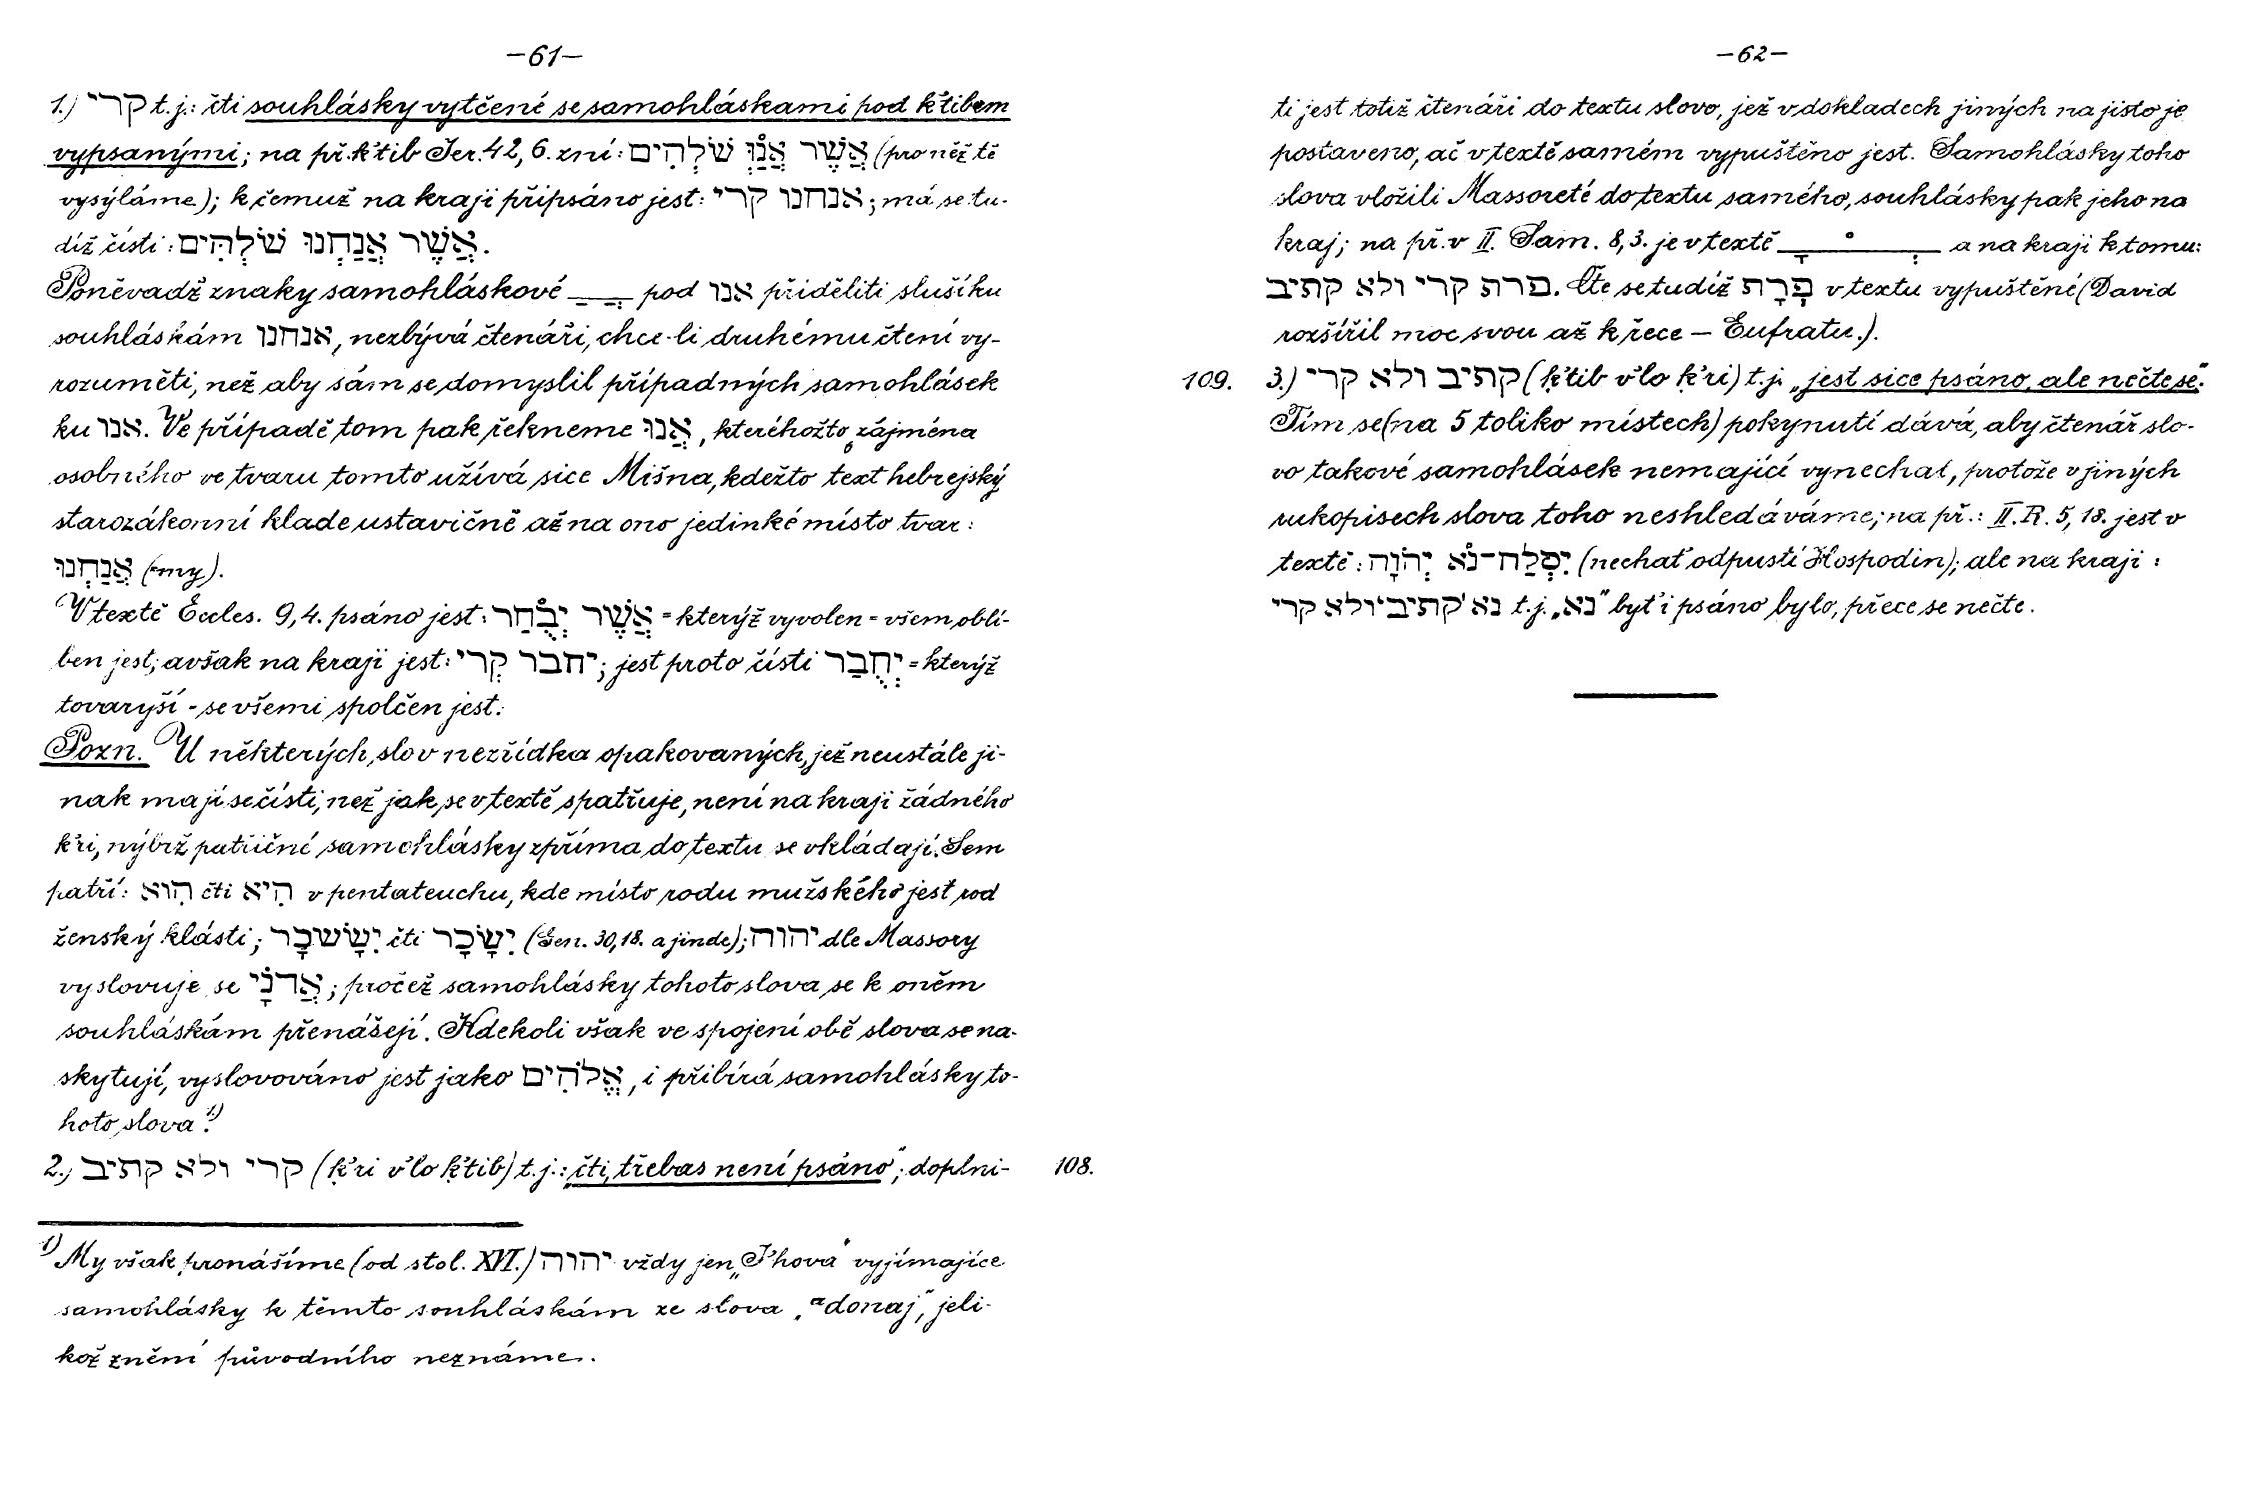 —61—
1.) קרי t. j.: čti souhlásky vytčené se samohláskami pod k'tibem
vypsanými; na př. k'tib Jer. 42, 6. zní: אֲשֶׁר אֲנַ֯וּ שֹׁלְהִים (pro něž tě
vysýláme); k čemuž na kraji připsáno jest: אנחנו קרי; má se tu-
díž čísti: אֲשֶׁר אֲנַחְנוּ שֹׁלְהִים.
Poněvadž znaky samohláskové ֲ ַ ְ pod אנו přiděliti slušíku
souhláskám אנחנו, nezbývá čtenáři, chce-li druhému čtení vy-
rozuměti, než aby sám se domyslil případných samohlásek
ku אנו. Ve případě tom pak řekneme אֲנוּ, kteréhožto zájména
osobního ve tvaru tomto užívá sice Mišna, kdežto text hebrejský
starozákonní klade ustavičně až na ono jedinké místo tvar:
אֲנַחְנוּ (=my).
V textě Eccles. 9, 4. psáno jest: אֲשֶׁר יְבֻ֯חַר = kterýž vyvolen = všem oblí-
ben jest; avšak na kraji jest: יחבר קְרי; jest proto čísti יְחֻבַּר = kterýž
tovaryší - se všemi spolčen jest.
Pozn. U některých slov nezřídka opakovaných, jež neustále ji-
nak mají se čísti, než jak se v textě spatřuje, není na kraji žádného
k'ri, nýbrž patřičné samohlásky zpříma do textu se vkládají. Sem
patří: הִוא čti הִיא v pentateuchu, kde místo rodu mužského jest rod
ženský klásti; יִשָּׂשכָר čti יִשָּׂכָר (Gen. 30, 18. a jinde); יהוה dle Massory
vyslovuje se אֲדֹנָי; pročež samohlásky tohoto slova se k oněm
souhláskám přenášejí. Kdekoli však ve spojení obě slova se na-
skytují, vyslovováno jest jako אֱלֹהִים, i přibírá samohlásky to-
hoto slova 1).
2.) קרי ולא קתיב (k'ri v'lo k'tib) t. j.: „čti, třebas není psáno"; doplni- 108.
1) My však pronášíme (od stol. XVI.) יהוה vždy jen „J'hova" vyjímajíce
samohlásky k těmto souhláskám ze slova „adonaj", jeli-
kož znění původního neznáme.
—62—
ti jest totiž čtenáři do textu slovo, jež v dokladech jiných na jisto je
postaveno, ač v textě samém vypuštěno jest. Samohlásky toho
slova vložili Massoreté do textu samého, souhlásky pak jeho na
kraj; na př. v II. Sam. 8, 3. je v textě ְ ֯ ָ a na kraji k tomu:
פרת קרי ולא קתיב. Čte se tudíž פְּרָת v textu vypuštění (David
rozšířil moc svou až k řece — Eufratu.).
109. 3.) קתיב ולא קרי (k'tib v'lo k'ri) t. j. „jest sice psáno, ale nečte se".
Tím se (na 5 toliko místech) pokynutí dává, aby čtenář slo-
vo takové samohlásek nemající vynechal, protože v jiných
rukopisech slova toho neshledáváme; na př.: II. R. 5, 18. jest v
textě: יִסְלַח־נ֯א יְהֹוָה (nechať odpustí Hospodin); ale na kraji:
נא קתיב ולא קרי t. j. „נא" byť i psáno bylo, přece se nečte.